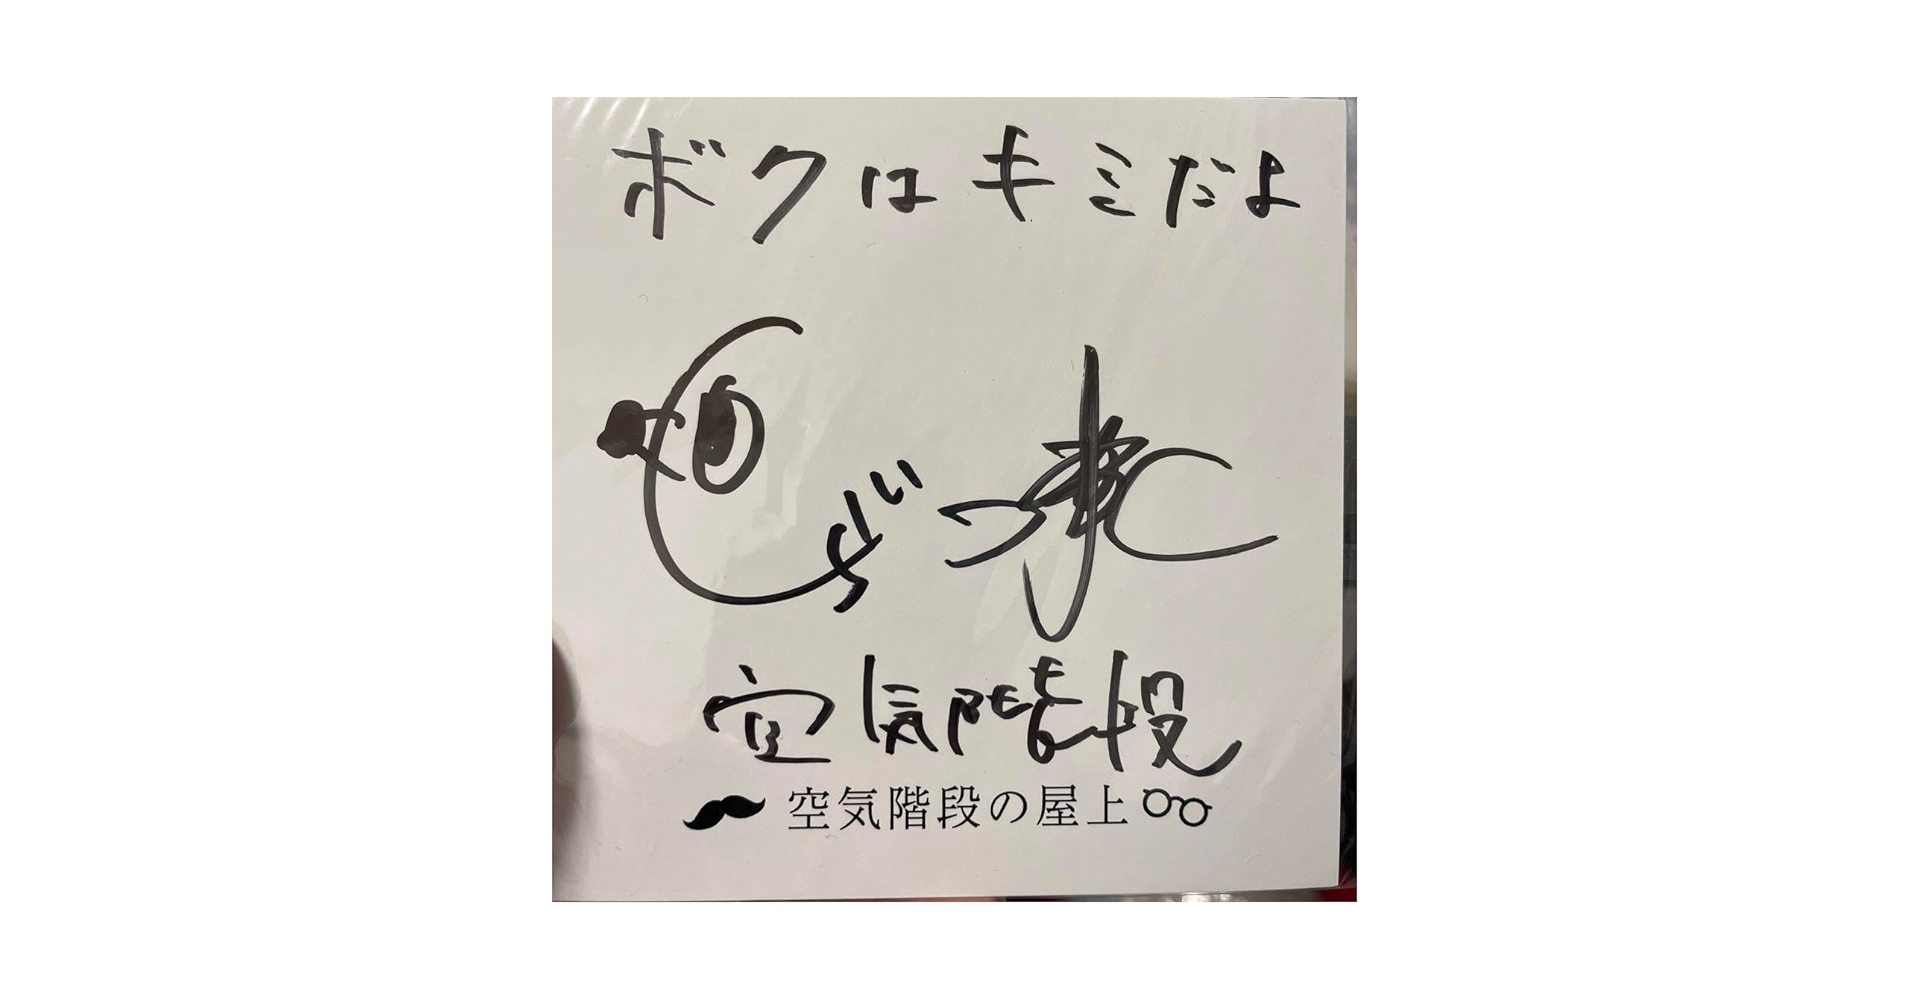 ボクはキミだよ
空気階段
空気階段の屋上